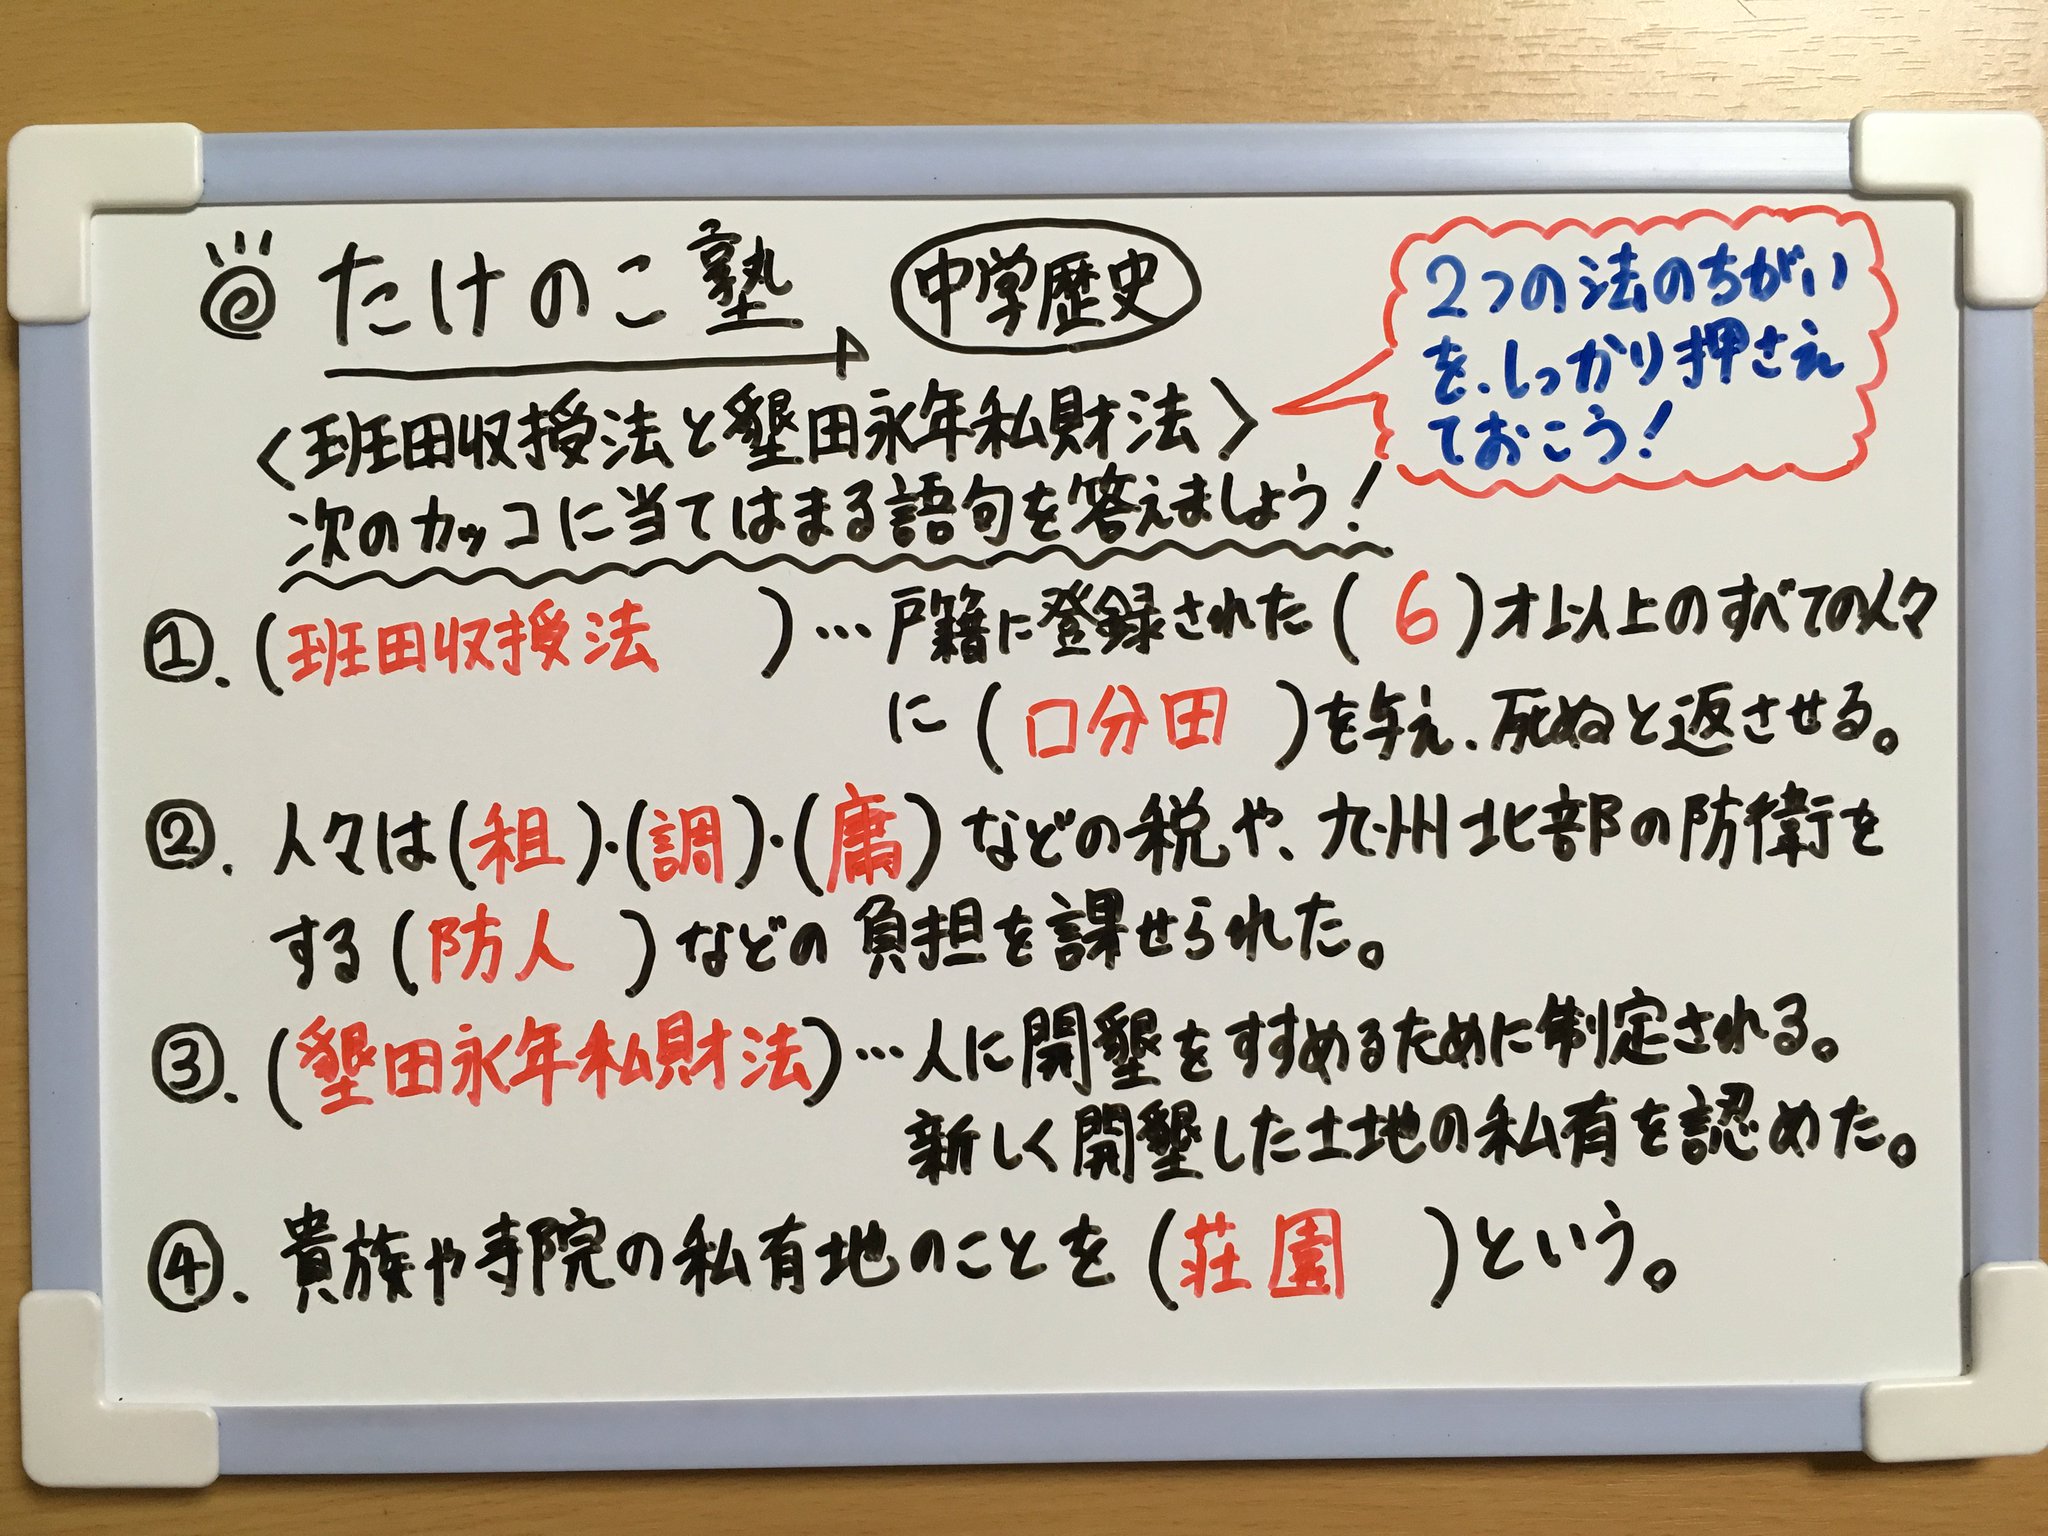 たけのこ塾 中学歴史
2つの法のちがい
を、しっかり押さえ
ておこう!
〈班田収授法と墾田永年私財法〉
次のカッコに当てはまる語句を答えましょう!
①.(班田収授法)…戸籍に登録された(6)才以上のすべての人々
に(口分田)を与え、死ぬと返させる。
②.人々は(租)・(調)・(庸)などの税や、九州北部の防衛を
する(防人)などの負担を課せられた。
③.(墾田永年私財法)…人に開墾をすすめるために制定される。
新しく開墾した土地の私有を認めた。
④.貴族や寺院の私有地のことを(荘園)という。